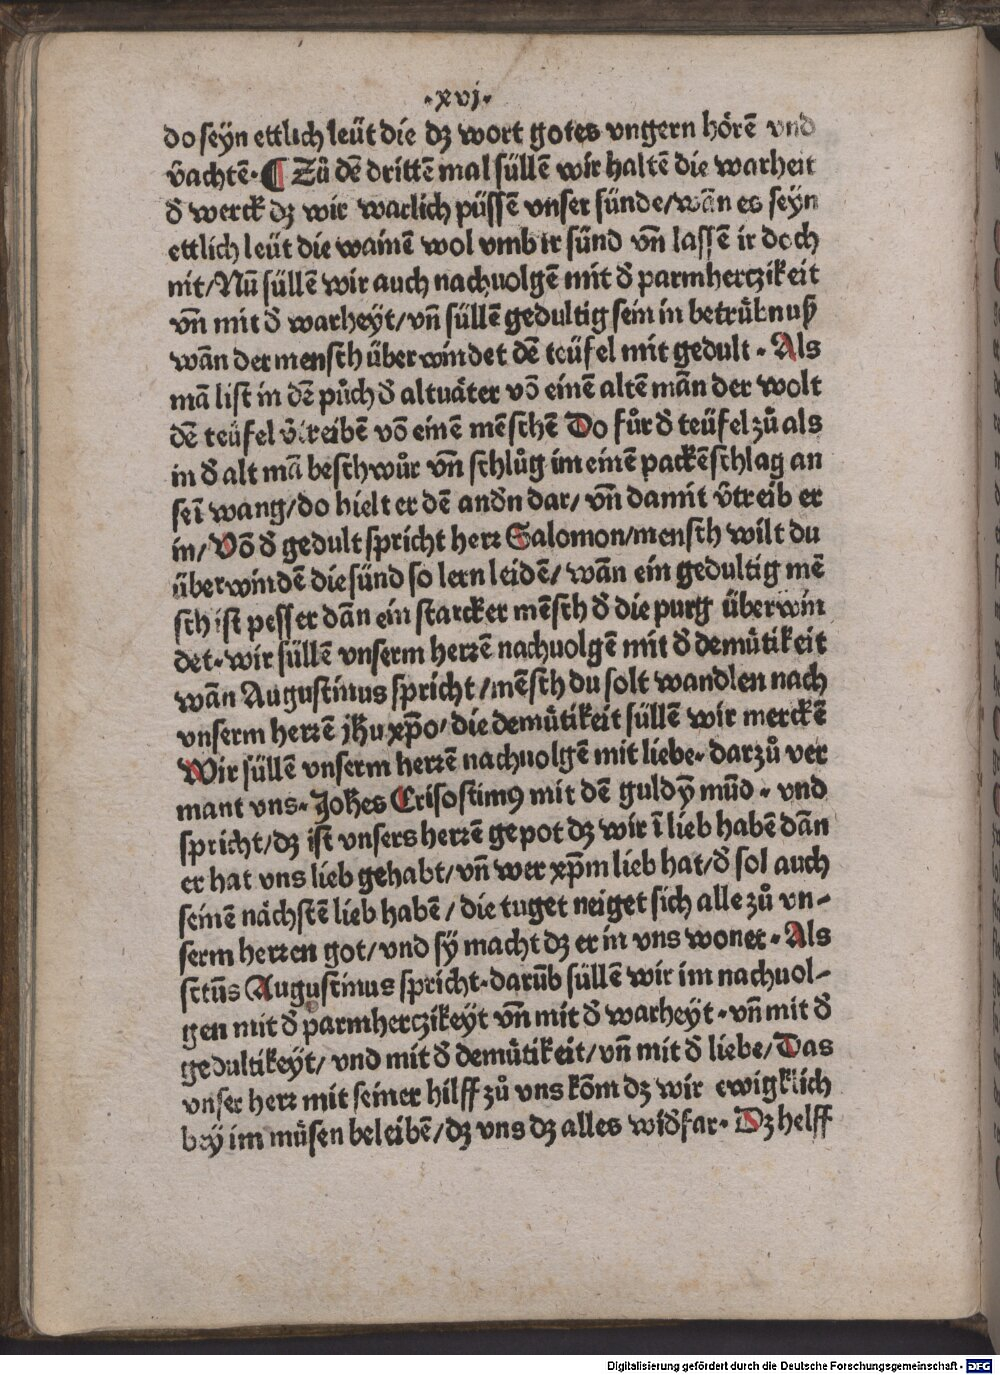 ·xvj·
do seyn ettlich leüt die dz wort gotes vngern hörē vnd
v̄achtē·¶ Zů dē drittē mal süllē wir haltē die warheit
đ werck dz wir warlich püssē vnser sünde/wān es seyn
ettlich leüt die wainē wol vmb ir sünd vn̄ lassē ir doch
nit/Nū süllē wir auch nachuolgē mit đ parmhertzikeit
vn̄ mit đ warheyt/vn̄ süllē gedultig sein in betrůbnuß
wān der mensch überwindet dē teüfel mit gedult · Als
mā list in dē půch đ altuäter vō einē altē mān der wolt
dē teüfel v̄treibē vō einē mēschē Do fůr đ teüfel zů als
in đ alt mā beschwůr vn̄ schlůg im einē packēschlag an
seī wang/do hielt er dē andn̄ dar/ vn̄ damit v̄treib er
in/Vō đ gedult spricht herr Salomon/mensch wilt du
überwindē die sünd so lern leidē/ wān ein gedultig mē
sch ist pesser dān ein starcker mēsch đ die purg überwin
det·wir süllē vnserm herrē nachuolgē mit đ demůtikeit
wān Augustinus spricht/mēsch du solt wandlen nach
vnserm herrē jhu xp̄o/die demůtikeit süllē wir merckē
Wir süllē vnserm herrē nachuolgē mit liebe·darzů ver
mant vns·Johes Crisostimꝰ mit dē guldȳ mūd·vnd
spricht/dz ist vnsers herrē gepot dz wir ī lieb habē dān
er hat vns lieb gehabt/vn̄ wer xp̄m lieb hat/đ sol auch
seinē nächstē lieb habē/die tuget neiget sich alle zů vn-
serm herren got/vnd sÿ macht dz er in vns wonet·Als
sctūs Augustinus spricht·darūb süllē wir im nachuol-
gen mit đ parmhertzikeyt vn̄ mit đ warheyt·vn̄ mit đ
gedultikeyt/ vnd mit đ demůtikeit/vn̄ mit đ liebe/Das
vnser herr mit seiner hilff zů vns kōm dz wir ewigklich
bey im můsen beleibē/dz vns dz alles widf̄ar·Dz helff
Digitalisierung gefördert durch die Deutsche Forschungsgemeinschaft - DFG